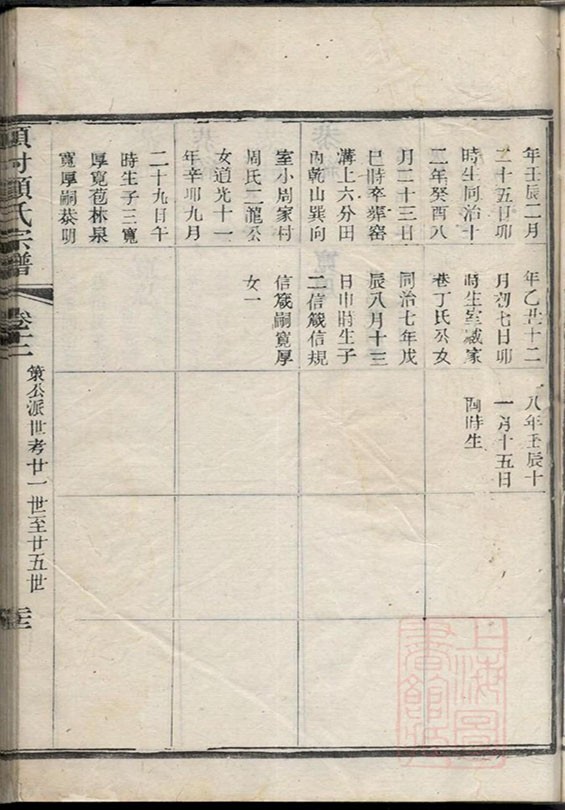 年壬辰二月
二十五日卯
時生同治十
二年癸酉八
月二十三日
巳時卒葬窑
溝上六分田
內乾山巽向
室小周家村
周氏二龍公
女道光十一
年辛卯九月
二十九日午
時生子三寬
厚寬苞林泉
寬厚嗣恭明
年乙丑十二
月初七日卯
時生室臧家
巷丁氏公女
同治七年戊
辰八月十三
日申時生子
二信箴信規
信箴嗣寬厚
女一
八年壬辰十
一月十五日
酉時生
項村顧氏宗譜
卷十二
策公派世考廿一世至廿五世
上海圖書館藏